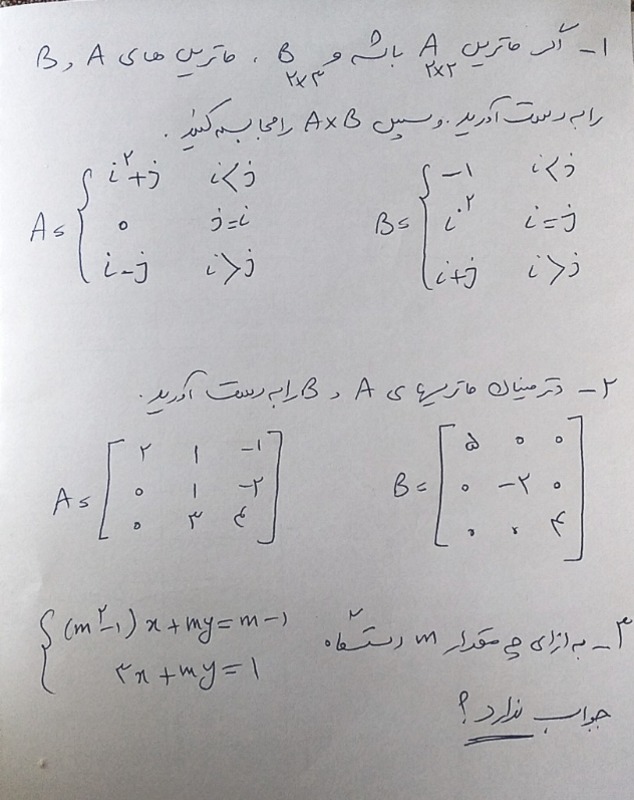 ۱- اگر ماتریس A ۲×۲ باشه و B ۲×۳ ، ماتریس های A و B
را به دست آورید. و سپس A×B را محاسبه کنید.
A = { i²+j i<j
۰ j=i
i-j i>j
B = { -۱ i<j
i² i=j
i+j i>j
۲- دترمینان ماتریسهای A و B را به دست آورید.
A = [ ۲ ۱ -۱
۰ ۱ -۲
۰ ۳ ۴ ]
B = [ ۵ ۰ ۰
۰ -۲ ۰
۰ ۰ ۴ ]
۳- به ازای چه مقدار m دستگاه
{ (m²-۱)x+my=m-۱
۳x+my=۱
جواب ندارد؟